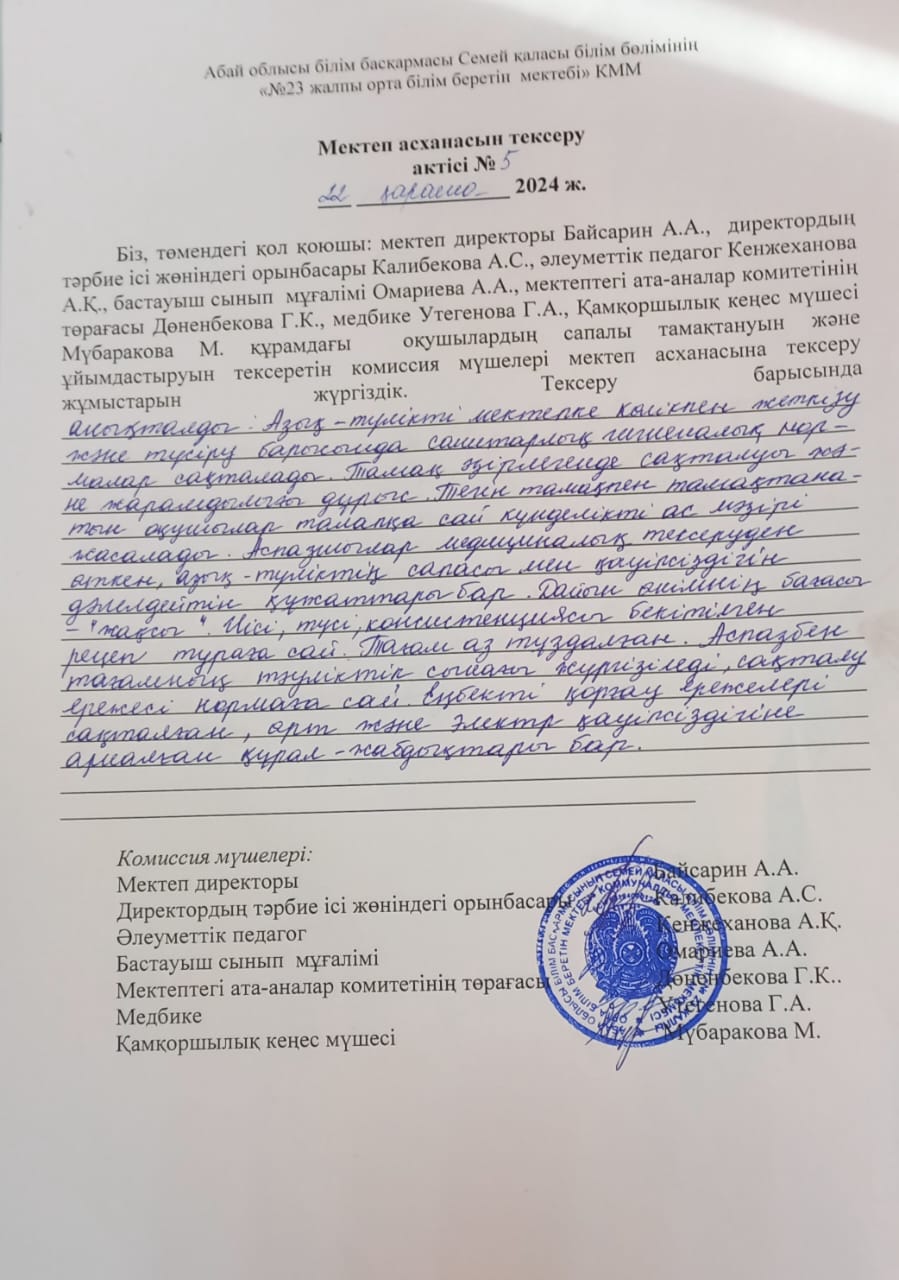 Абай облысы білім басқармасы Семей қаласы білім бөлімінің
«№23 жалпы орта білім беретін мектебі» КММ
Мектеп асханасын тексеру
актісі № 5
22 қараша 2024 ж.
Біз, төмендегі қол қоюшы: мектеп директоры Байсарин А.А., директордың
тәрбие ісі жөніндегі орынбасары Калибекова А.С., әлеуметтік педагог Кенжеханова
А.Қ., бастауыш сынып мұғалімі Омариева А.А., мектептегі ата-аналар комитетінің
төрағасы Дөненбекова Г.К., медбике Утегенова Г.А., Қамқоршылық кеңес мүшесі
Мүбаракова М. құрамдағы оқушылардың сапалы тамақтануын және
ұйымдастыруын тексеретін комиссия мүшелері мектеп асханасына тексеру
жұмыстарын жүргіздік. Тексеру барысында
анықталды: Азық-түлікті мектепке көлікпен жеткізу
және түсіру барысында санитарлық гигиеналық нор-
малар сақталады. Тамақ әзірлегенде сақталуы жә-
не жарамдылығы дұрыс. Тегін тамақпен тамақтана-
тын оқушылар талапқа сай күнделікті ас мәзірі
жасалады. Аспазшылар медициналық тексеруден
өткен, азық-түліктің сапасы мен қауіпсіздігін
дәлелдейтін құжаттары бар. Дайын өнімнің бағасы
- "жақсы". Иісі, түсі, консистенциясы бекітілген
рецеп тураға сай. Тағам аз тұздалған. Аспазбен
тағамның тәуліктік сынағы жүргізіледі, сақталу
ережесі нормаға сай. Еңбекті қорғау ережелері
сақталған, өрт және электр қауіпсіздігіне
арналған құрал-жабдықтары бар.
Комиссия мүшелері:
Мектеп директоры Байсарин А.А.
Директордың тәрбие ісі жөніндегі орынбасары Калибекова А.С.
Әлеуметтік педагог Кенжеханова А.Қ.
Бастауыш сынып мұғалімі Омариева А.А.
Мектептегі ата-аналар комитетінің төрағасы Дөненбекова Г.К..
Медбике Утегенова Г.А.
Қамқоршылық кеңес мүшесі Мүбаракова М.